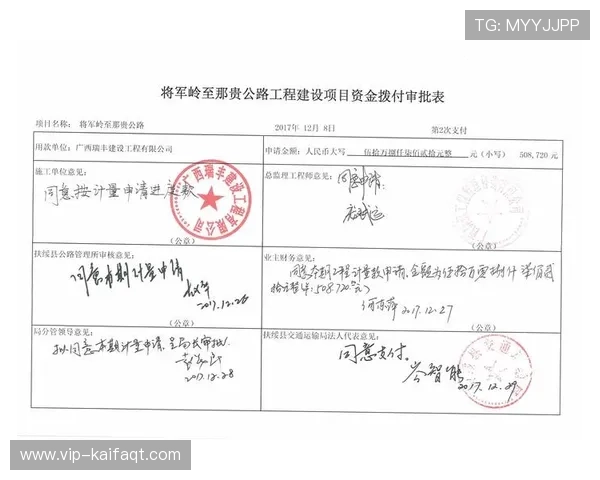 TG: MYYJJPP
将军岭至那贵公路工程建设项目资金拨付审批表
项目名称：将军岭至那贵公路 2017年 12月 8日 第2次支付
用款单位：广西瑞丰建设工程有限公司 申请金额：人民币大写 伍拾万捌仟柒佰贰拾元整 元（小写） 508,720 元
施工单位意见： 总监理工程师意见：
同意按计量申请进度款
广西瑞丰建设工程有限公司
同意申请
（公章） （公章）
扶绥县公路管理所审核意见： 业主财务意见：
同意本期计量申请
2017.12.26
同意本期工程计量款申请，金额为伍拾万零捌仟柒佰贰
拾元整（¥：508,720元）
2017.12.27
（公章） （公章）
局分管领导意见： 扶绥县交通运输局法人代表意见：
拟同意本期计量申请，呈局长审批。
2017.12.28
同意支付。
岑智能
2017.12.29
（公章） （公章）
www.vip-kaifaqt.com